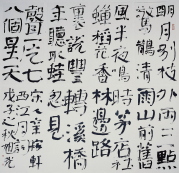 明月別枝
驚鵲清
風半夜鳴
蟬稻花香
裏說豐
年聽取蛙
聲一片七
八個星天
外兩三點
雨山前舊
時茅店社
林邊路
轉溪橋
忽見
宋辛稼軒
西江月
戊子之秋